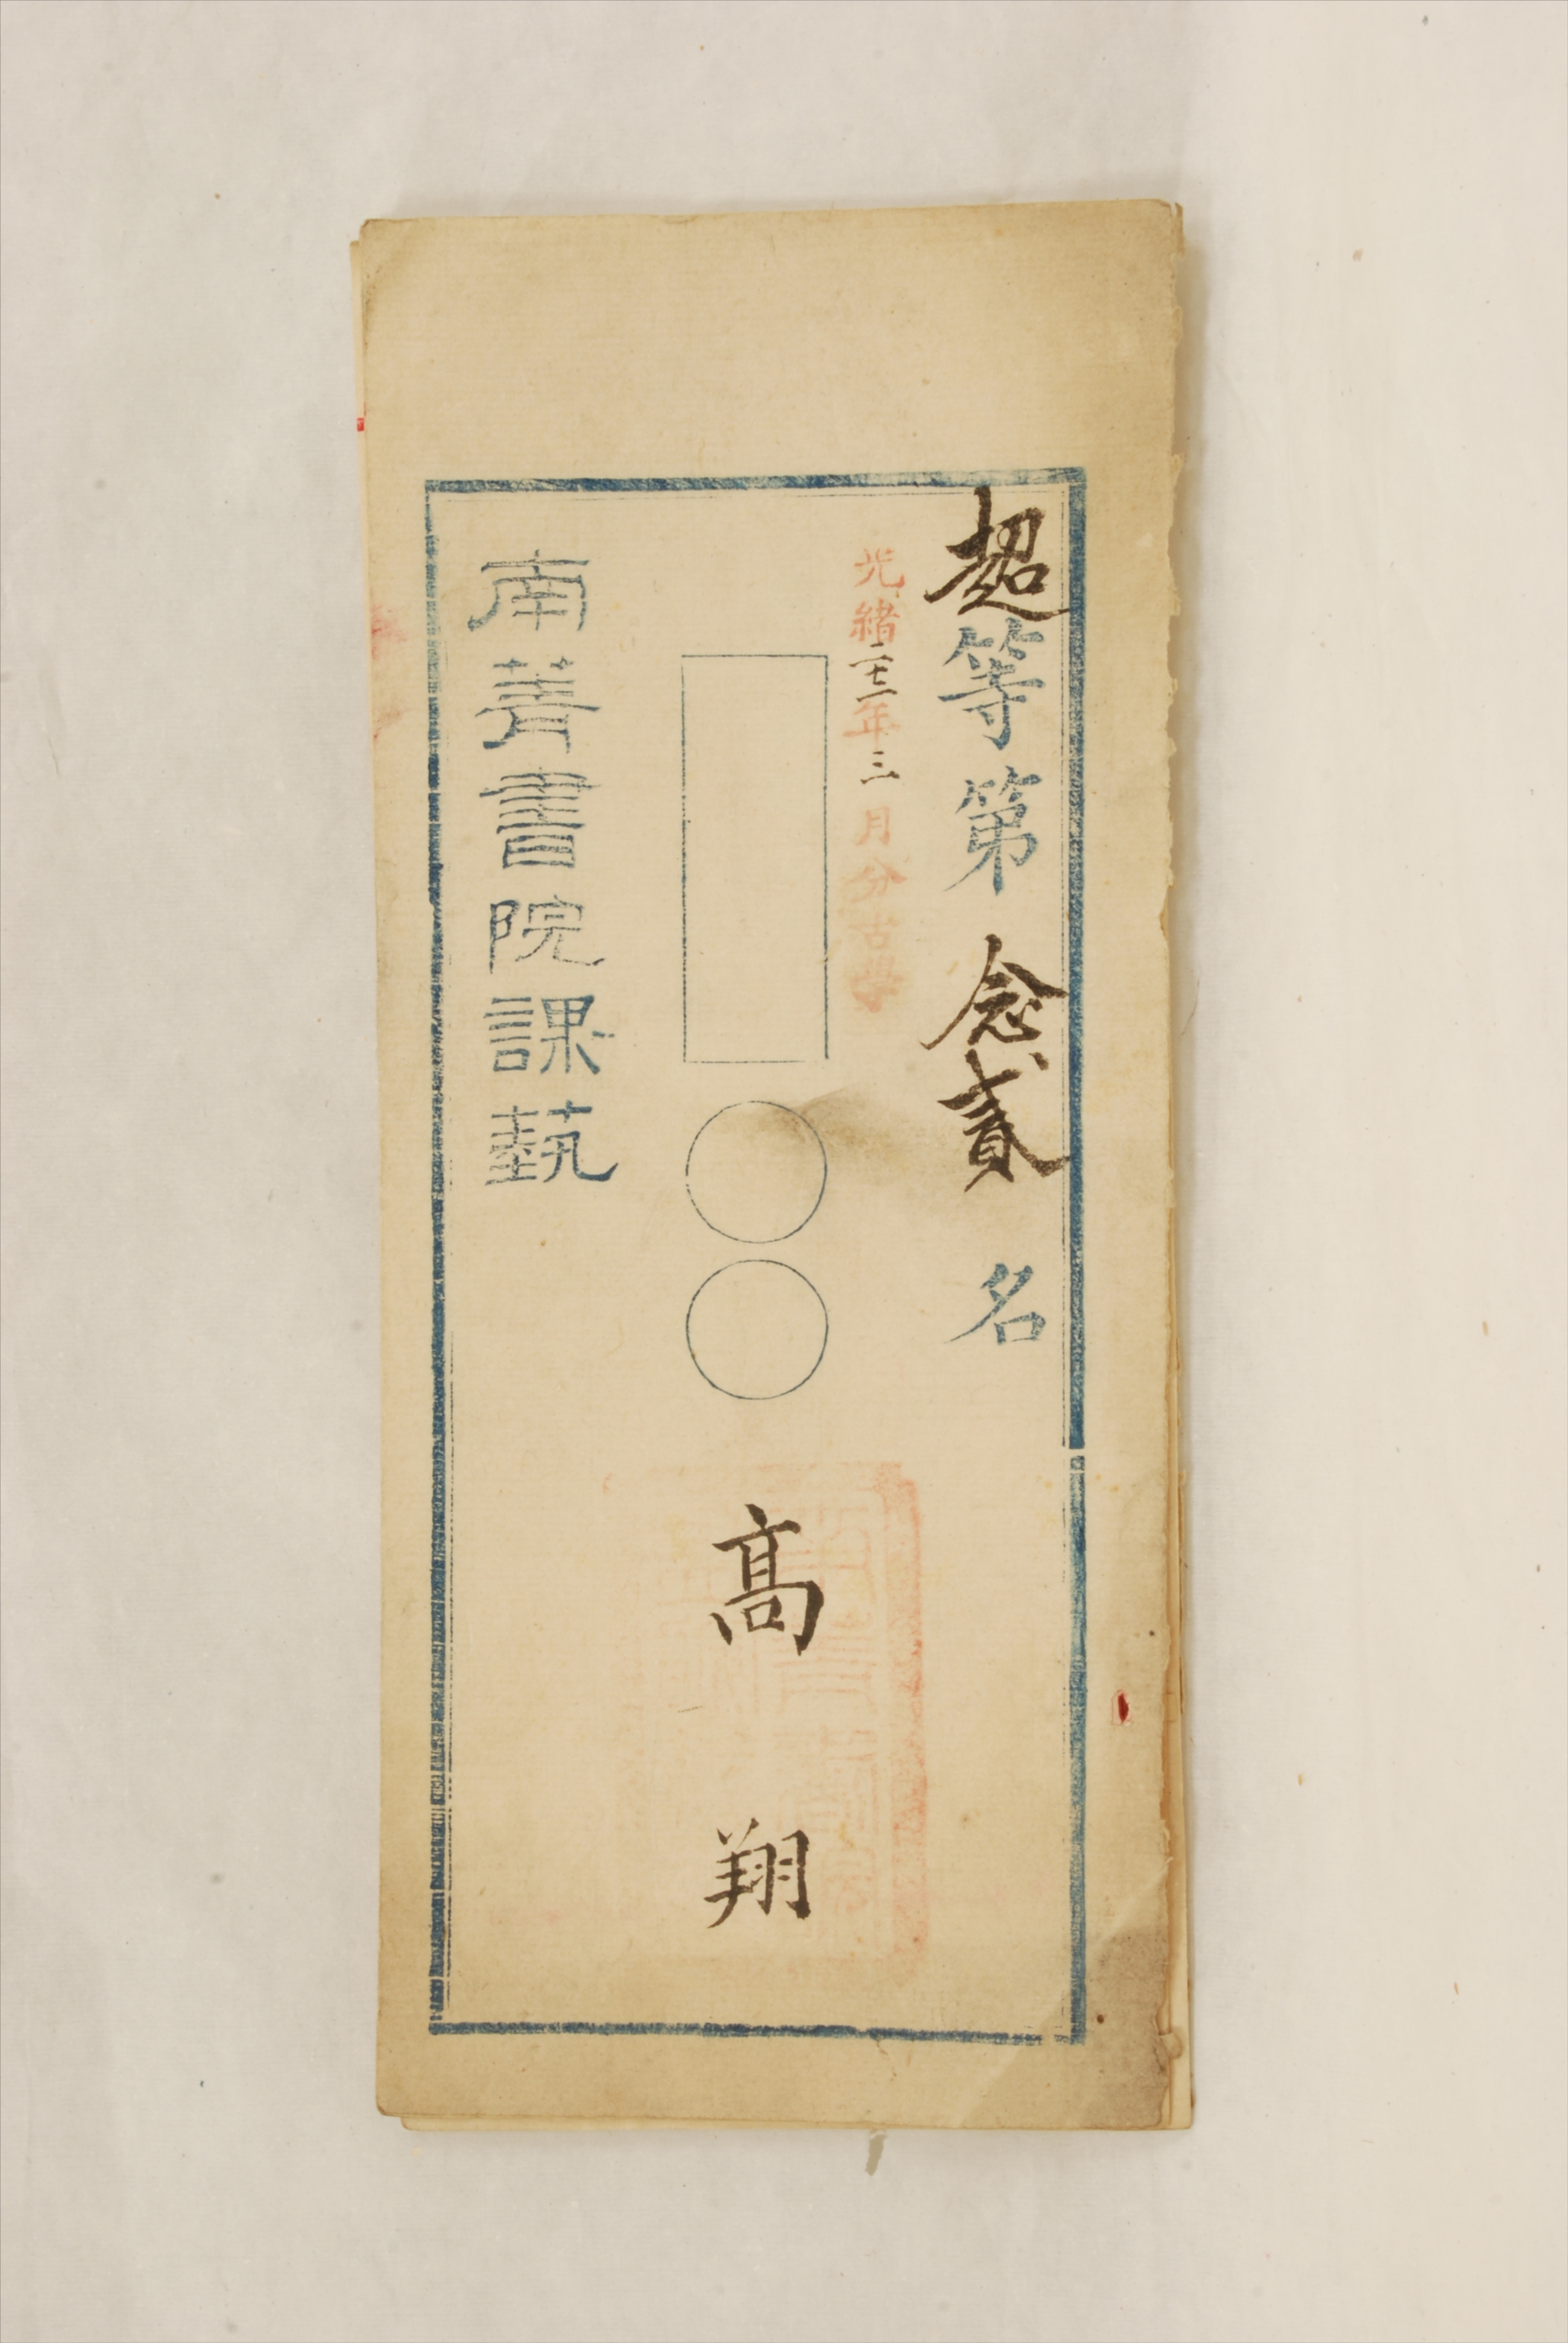 超等第念貳名
光緒二十二年三月分古學
髙翔
南菁書院課藝